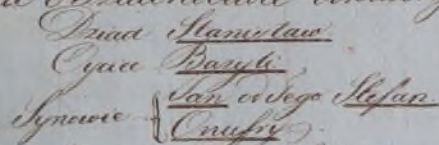 Dziad Stanisław
Oyciec Bazyli
Synowie { Jan od tego Stefan.
Onufry